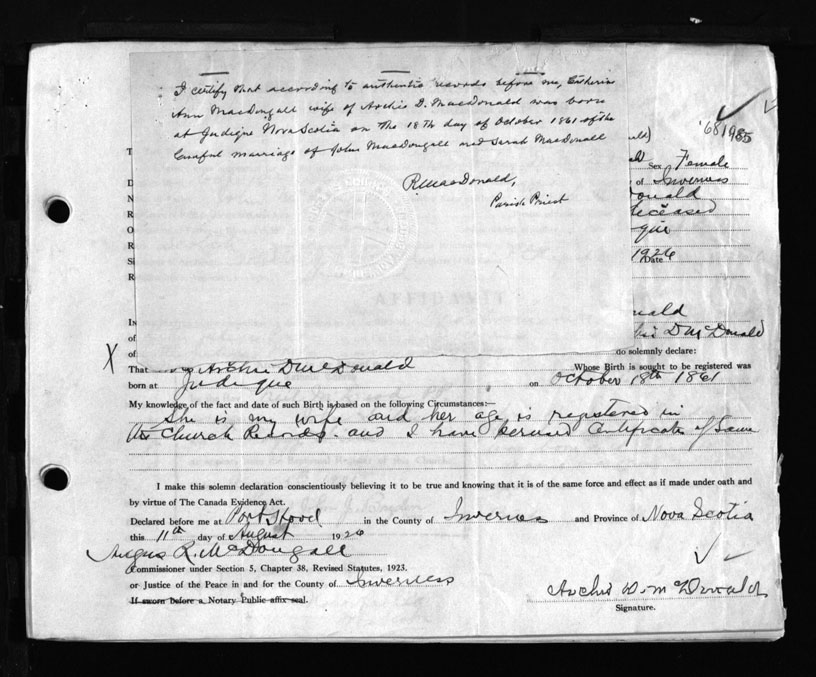 I certify that according to authentic records before me, Catherine
Ann MacDougall wife of Archie D. MacDonald was born
at Judique Nova Scotia on the 18th day of October 1861 of the
Lawful marriage of John MacDougall and Sarah MacDonald
RMacDonald,
Parish Priest
681985
Sex Female
of Inverness
Donald
deceased
que
1926
Date
nald
D McDonald
do solemnly declare:
That Archie D McDonald Whose Birth is sought to be registered was
born at Judique on October 18th 1861
My knowledge of the fact and date of such Birth is based on the following Circumstances:—
She is my wife and her age is registered in
the Church Records. and I have perused Certificate of Same
I make this solemn declaration conscientiously believing it to be true and knowing that it is of the same force and effect as if made under oath and
by virtue of The Canada Evidence Act.
Declared before me at Port Hood in the County of Inverness and Province of Nova Scotia
this 11th day of August 1926
Angus L. McDougall
Commissioner under Section 5, Chapter 38, Revised Statutes, 1923.
or Justice of the Peace in and for the County of Inverness
If sworn before a Notary Public affix seal.
Archie D. McDonald
Signature.